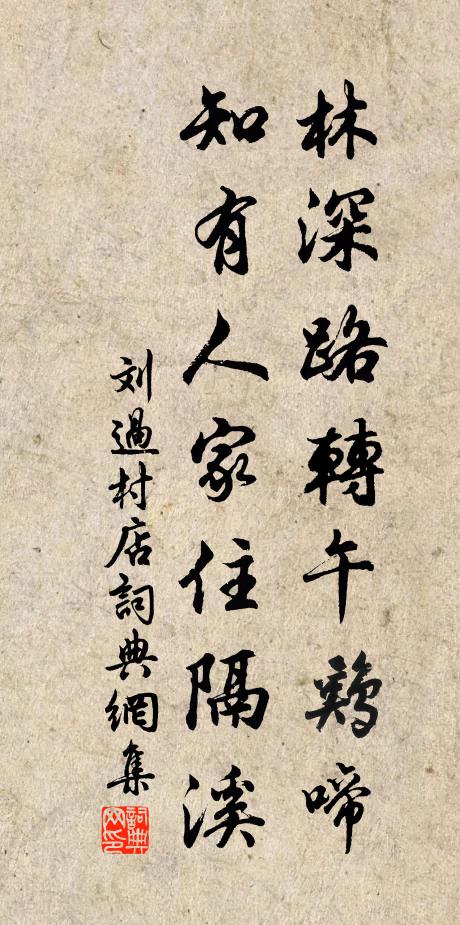 林深路轉午鷄啼
知有人家住隔溪
刘過村店詞典網集
詞典网印